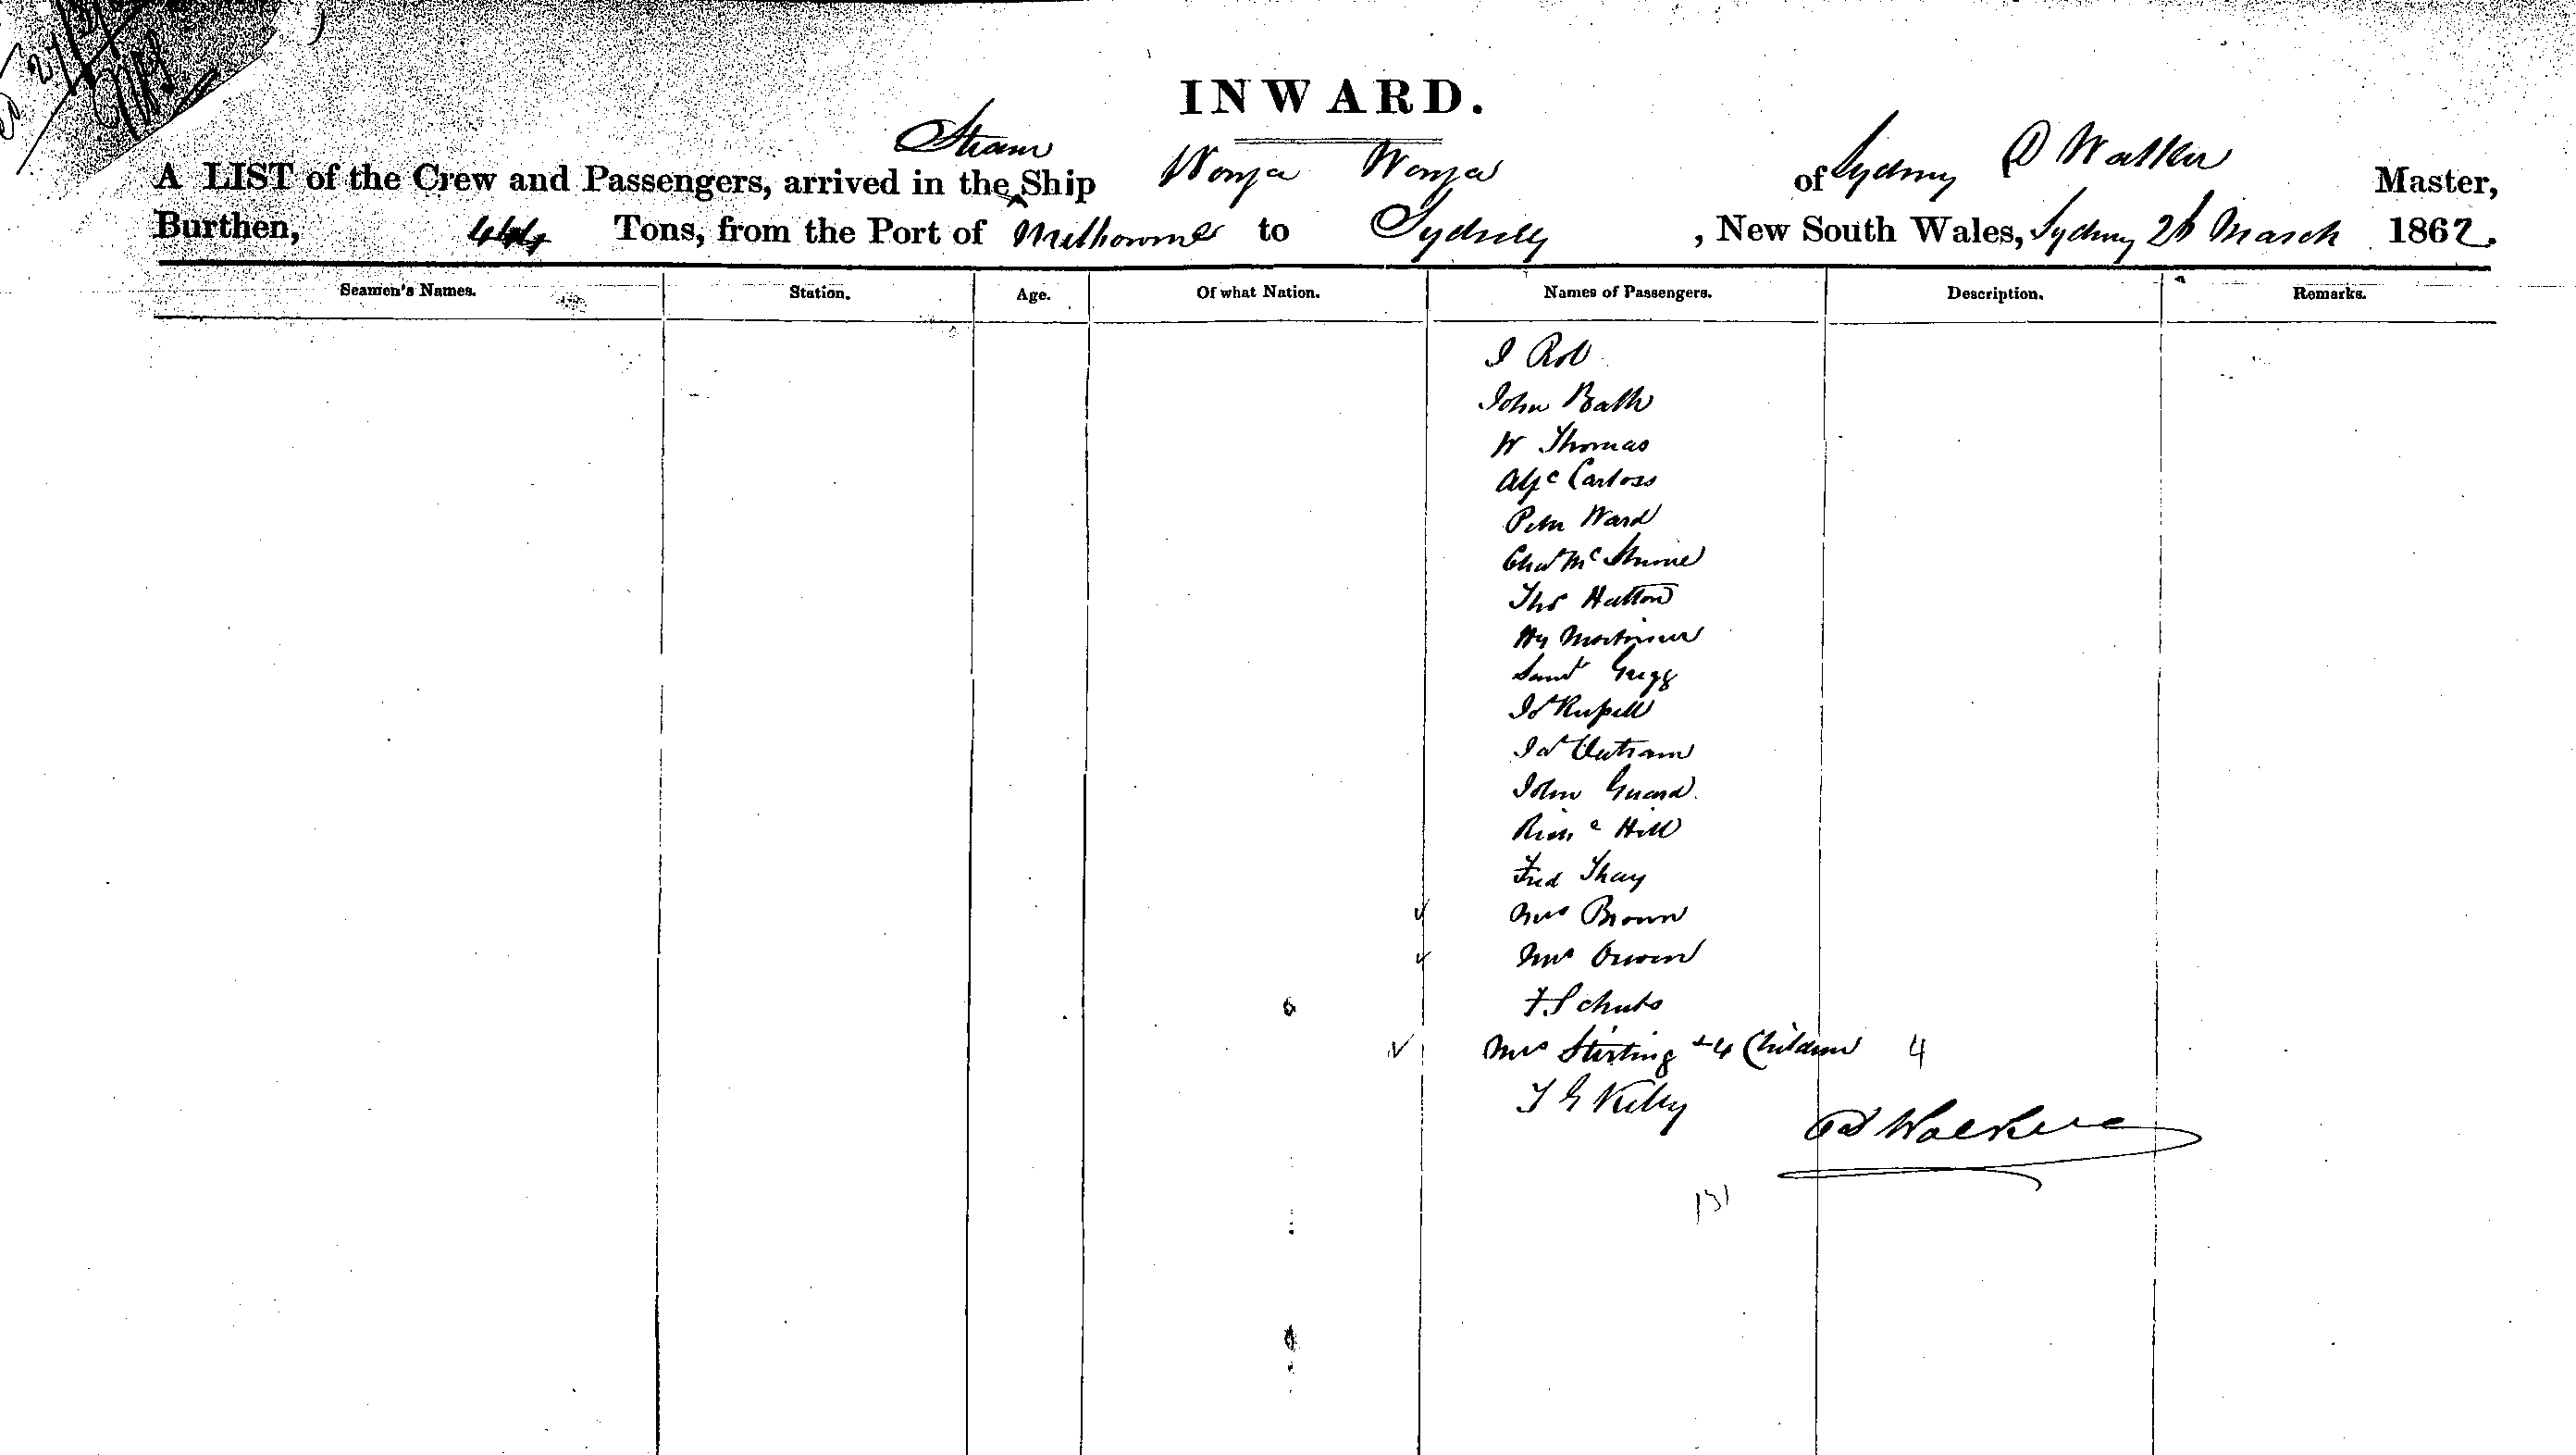 INWARD.
Steam
A LIST of the Crew and Passengers, arrived in the Ship Wonga Wonga of Sydney D Walker Master,
Burthen, 444 Tons, from the Port of Melbourne to Sydney, New South Wales, Sydney 26 March 1862.
Seamen's Names. Station. Age. Of what Nation. Names of Passengers. Description. Remarks.
I Rob
John Bath
W Thomas
Carloss
Peter Ward
Chas Mc
Thos Hatton
Hy Mortimer
Saml Grigg
Js Russell
Jas Outram
John Guard
Richd Hill
Fred Thay
Mrs Brown
Mrs Orwin
F Schuts
Mrs Stirling + 4 Children 4
T G Kelly
D Walker
131